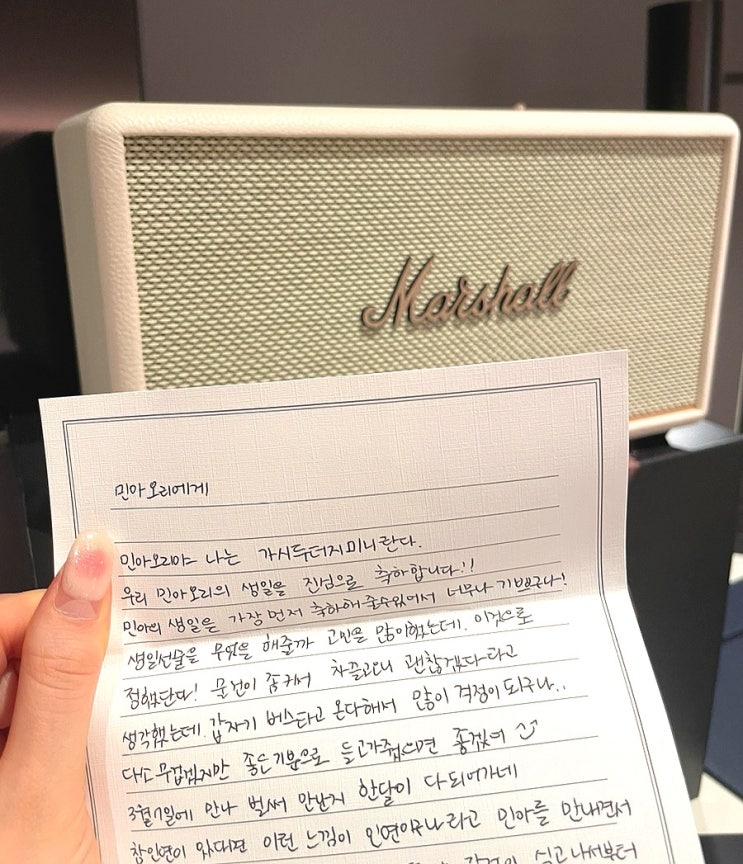 Marshall
민아오리에게
민아오리야 나는 가시두더지미니란다.
우리 민아오리의 생일을 진심으로 축하합니다!!
민아의 생일은 가장 먼저 축하해 줄수있어서 너무나 기쁘구나!
생일선물을 무엇을 해줄까 고민을 많이했는데. 이것으로
정했단다! 물건이 좀 커서 차끌고오니 괜찮겠다라고
생각했는데. 갑자기 버스타고 온다해서 많이 걱정이 되구나..
다소 무겁겠지만 좋은기분으로 들고가줬으면 좋겠어
3월1일에 만나 벌써 만난지 한달이 다되어가네
참인연이 있다면 이런 느낌이 인연이구나라고 민아를 만나면서
싶고 나서부터